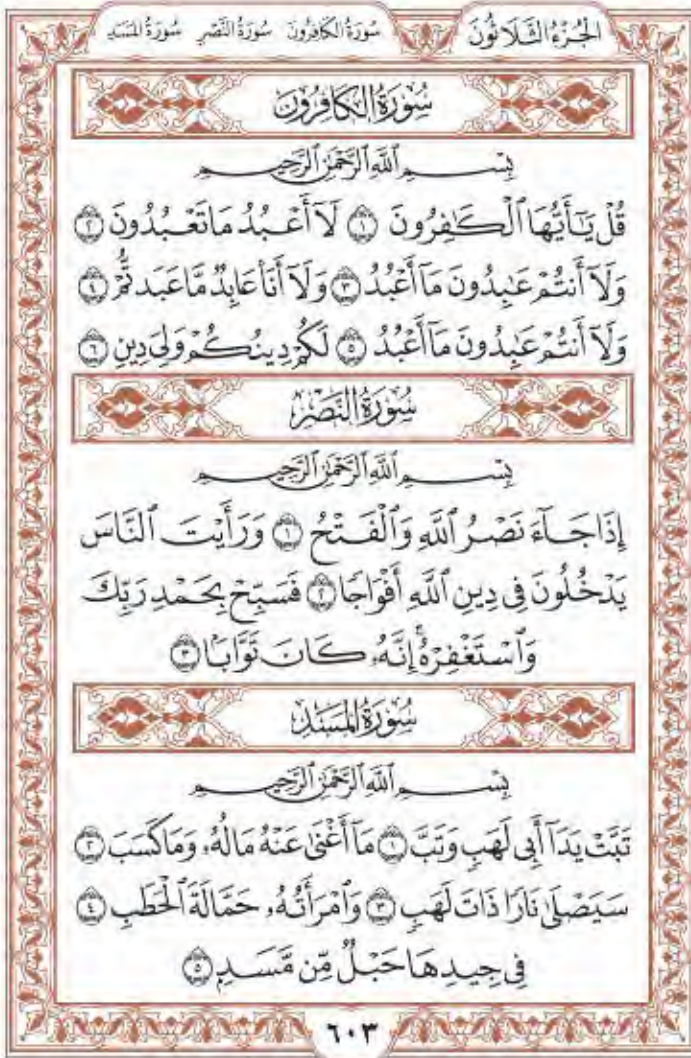 الجُزْءُ الثَّلَاثُونَ سُورَةُ الكَافِرُونَ سُورَةُ النَّصْرِ سُورَةُ المَسَدِ
سُورَةُ الكَافِرُونَ
بِسْمِ ٱللَّهِ ٱلرَّحْمَٰنِ ٱلرَّحِيمِ
قُلْ يَٰٓأَيُّهَا ٱلْكَٰفِرُونَ ١ لَآ أَعْبُدُ مَا تَعْبُدُونَ ٢
وَلَآ أَنتُمْ عَٰبِدُونَ مَآ أَعْبُدُ ٣ وَلَآ أَنَا۠ عَابِدٌ مَّا عَبَدتُّمْ ٤
وَلَآ أَنتُمْ عَٰبِدُونَ مَآ أَعْبُدُ ٥ لَكُمْ دِينُكُمْ وَلِىَ دِينِ ٦
سُورَةُ النَّصْرِ
بِسْمِ ٱللَّهِ ٱلرَّحْمَٰنِ ٱلرَّحِيمِ
إِذَا جَآءَ نَصْرُ ٱللَّهِ وَٱلْفَتْحُ ١ وَرَأَيْتَ ٱلنَّاسَ
يَدْخُلُونَ فِى دِينِ ٱللَّهِ أَفْوَاجًا ٢ فَسَبِّحْ بِحَمْدِ رَبِّكَ
وَٱسْتَغْفِرْهُ ۚ إِنَّهُۥ كَانَ تَوَّابًۢا ٣
سُورَةُ المَسَدِ
بِسْمِ ٱللَّهِ ٱلرَّحْمَٰنِ ٱلرَّحِيمِ
تَبَّتْ يَدَآ أَبِى لَهَبٍ وَتَبَّ ١ مَآ أَغْنَىٰ عَنْهُ مَالُهُۥ وَمَا كَسَبَ ٢
سَيَصْلَىٰ نَارًا ذَاتَ لَهَبٍ ٣ وَٱمْرَأَتُهُۥ حَمَّالَةَ ٱلْحَطَبِ ٤
فِى جِيدِهَا حَبْلٌ مِّن مَّسَدٍۭ ٥
٦٠٣